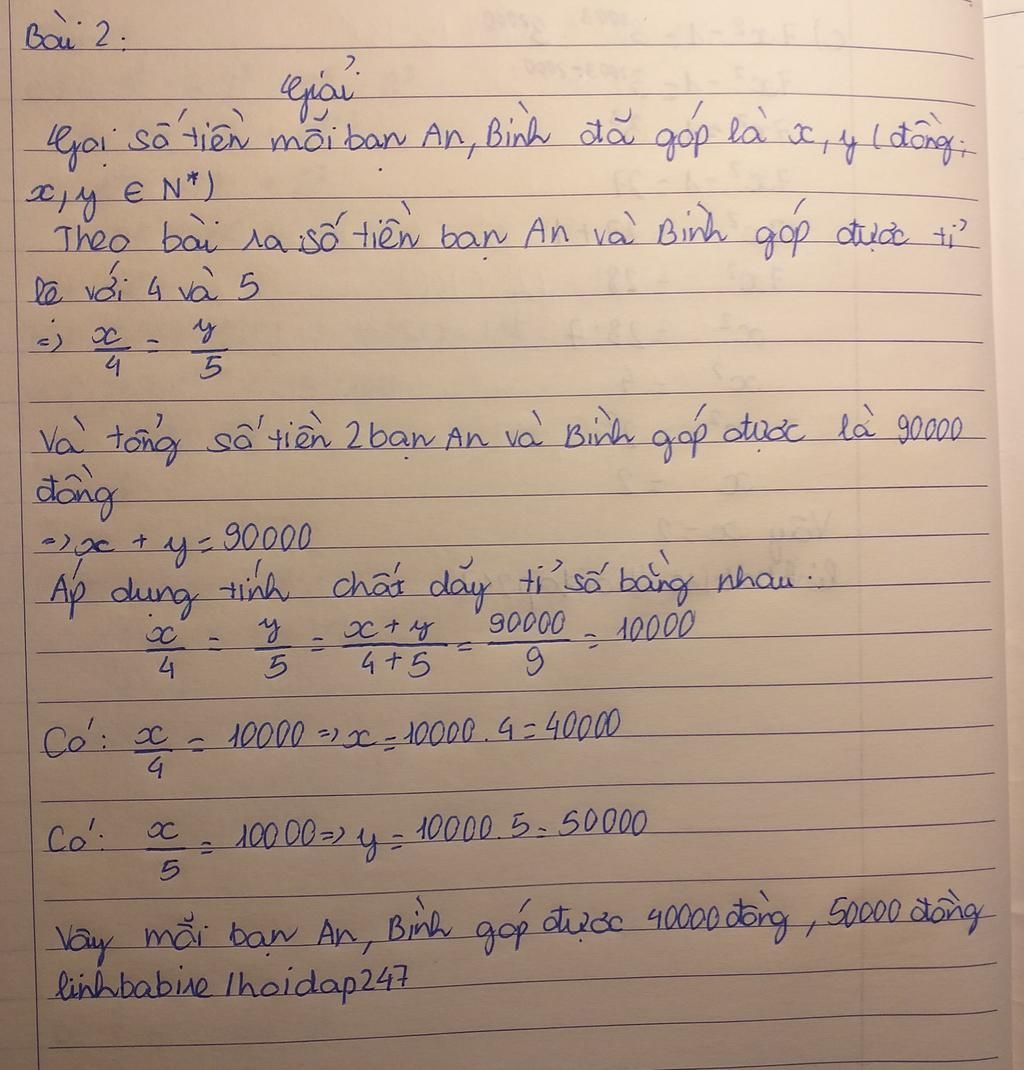 Bài 2:
Giải
Gọi số tiền mỗi bạn An, Bình đã góp là x, y (đồng;
x, y ∈ N*)
Theo bài ra số tiền bạn An và Bình góp được tỉ
lệ với 4 và 5
=> x/4 = y/5
Và tổng số tiền 2 bạn An và Bình góp được là 90000
đồng
=> x + y = 90000
Áp dụng tính chất dãy tỉ số bằng nhau:
x/4 = y/5 = (x + y)/(4 + 5) = 90000/9 = 10000
Có: x/4 = 10000 => x = 10000 . 4 = 40000
Có: x/5 = 10000 => y = 10000 . 5 = 50000
Vậy mỗi bạn An, Bình góp được 40000 đồng, 50000 đồng
linhbabiie / hoidap247